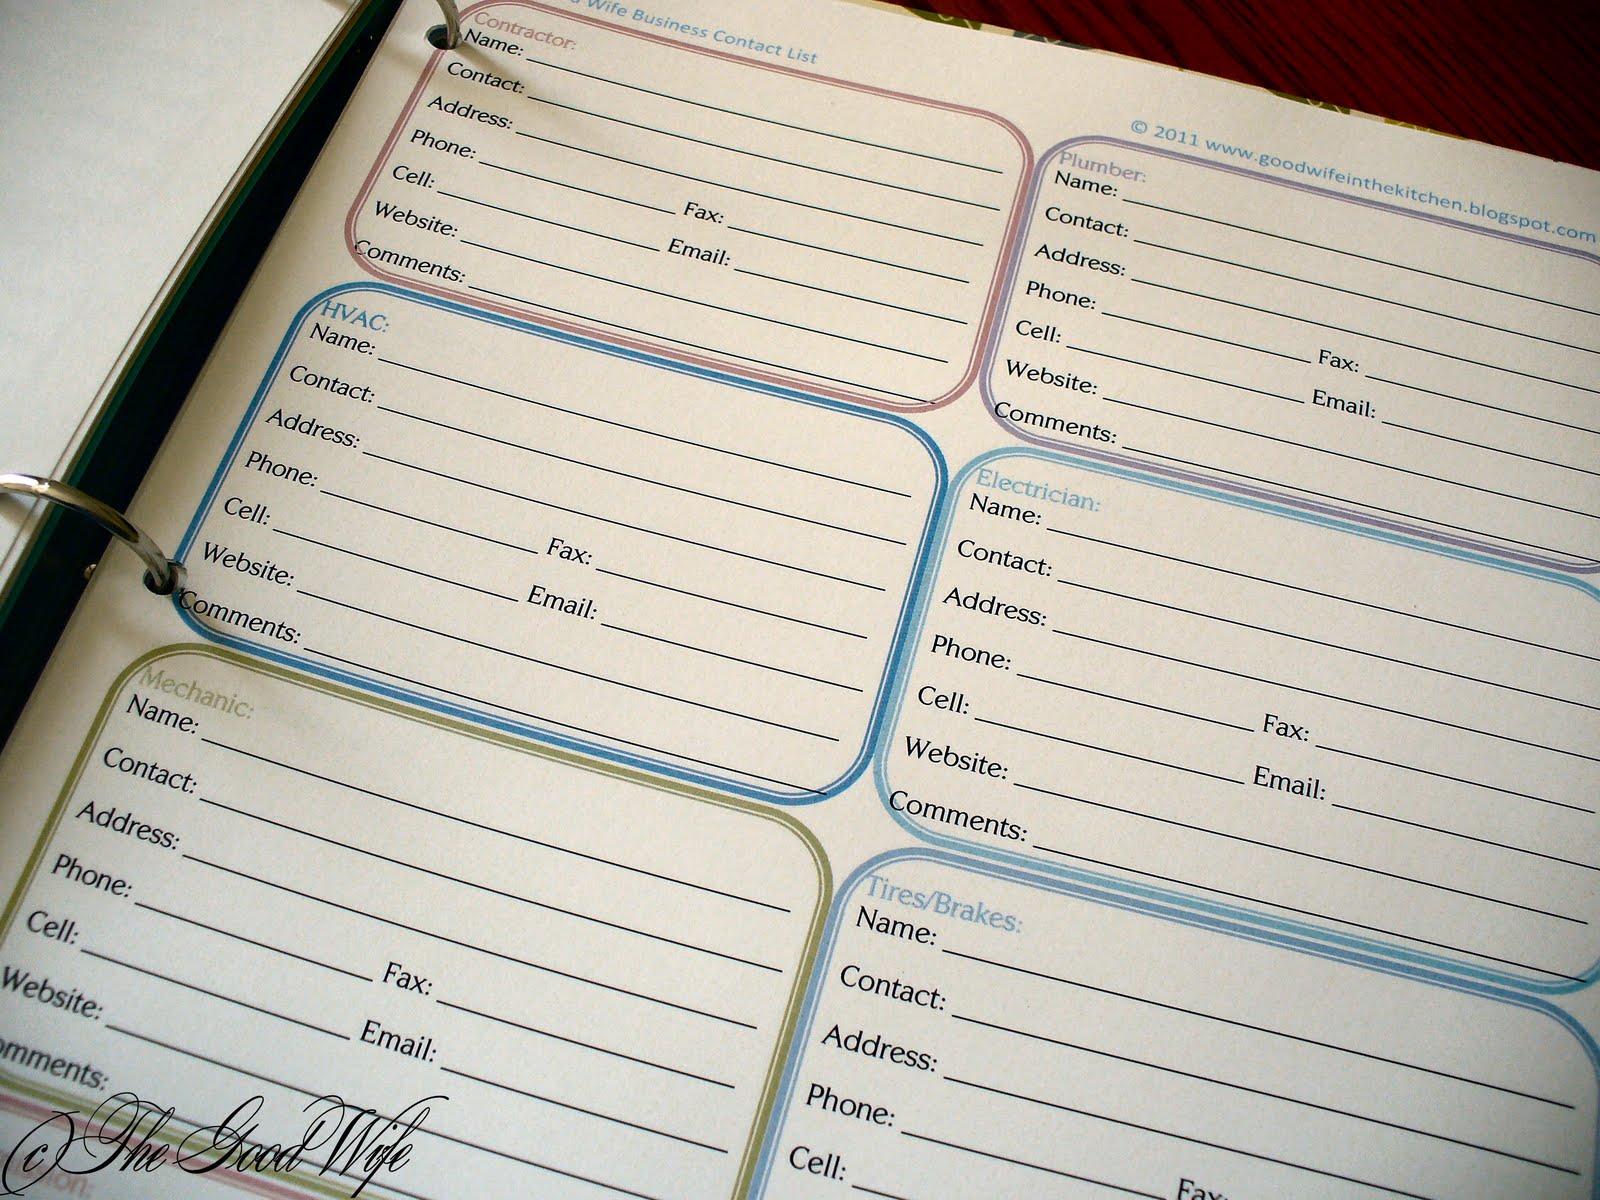 Wife Business Contact List
© 2011 www.goodwifeinthekitchen.blogspot.com
Contractor:
Name:
Contact:
Address:
Phone:
Cell: Fax:
Website: Email:
Comments:
Plumber:
Name:
Contact:
Address:
Phone:
Cell: Fax:
Website: Email:
Comments:
HVAC:
Name:
Contact:
Address:
Phone:
Cell: Fax:
Website: Email:
Comments:
Electrician:
Name:
Contact:
Address:
Phone:
Cell: Fax:
Website: Email:
Comments:
Mechanic:
Name:
Contact:
Address:
Phone:
Cell: Fax:
Website: Email:
omments:
Tires/Brakes:
Name:
Contact:
Address:
Phone:
Cell: Fax:
(c) The Good Wife